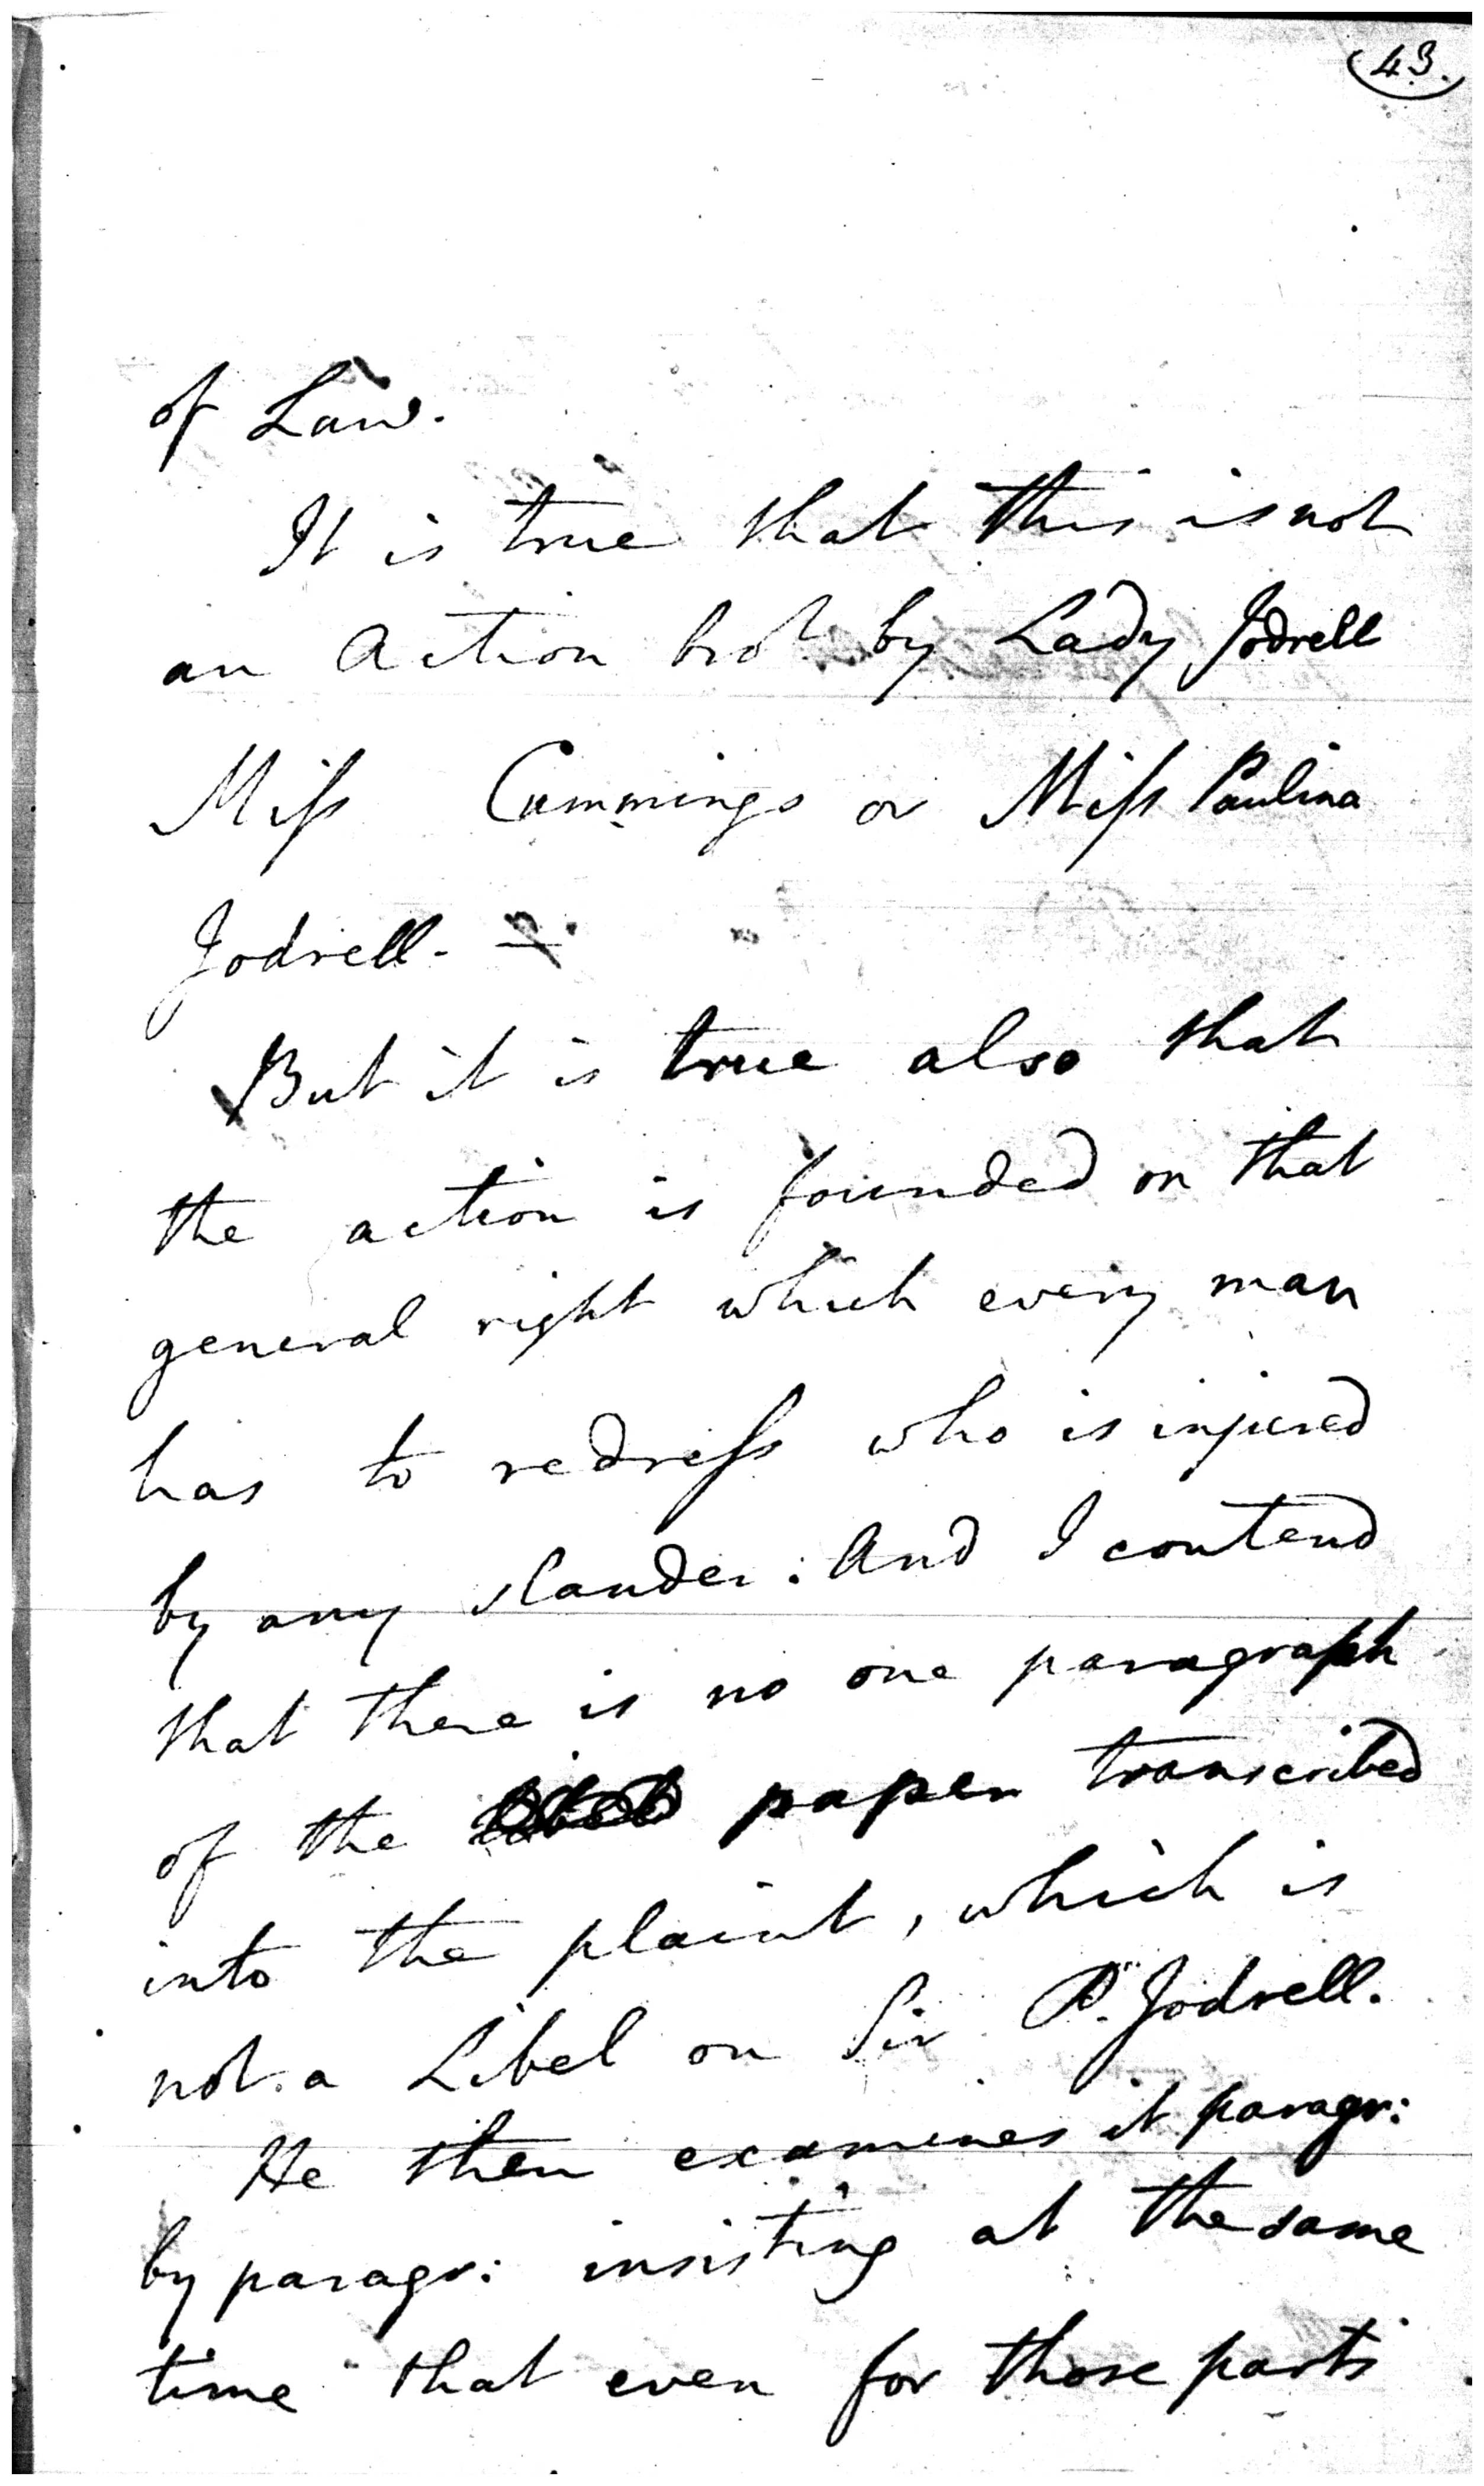 (43.
of Law.
It is true that this is not
an Action brot by Lady Jodrell
Miſs Cummings or Miſs Paulina
Jodrell. —
But it is true also that
the action is founded on that
general right which every man
has to redreſs who is injured
by any slander: And I contend
that there is no one paragraph
of the paper transcribed
into the plaint, which is
not a Libel on Sir P. Jodrell.
He then examines it paragr:
by paragr: insisting at the same
time that even for those parts